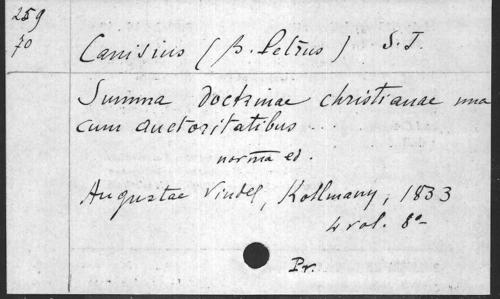 259
70
Canisius (B. Petrus) S.J.
Summa doctrinae christianae una
cum auctoritatibus ...
norma ed.
Augustae Vindel, Kollmann, 1833
4 vol. 8°
Pr.